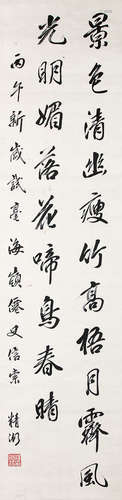 景色清幽瘦竹高梧月霽風
光明媚落花啼鳥春晴
丙午新歲試毫海嶺僊叟信宗
精衍